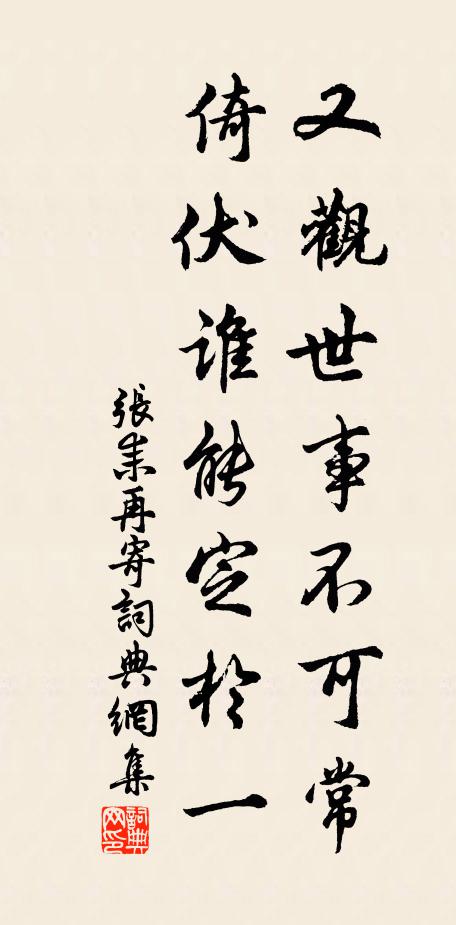 又觀世事不可常
倚伏誰能定於一
張耒再寄詞典網集
詞典网印